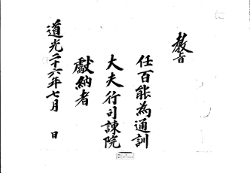 敎旨
任百能為通訓
大夫行司諫院
獻納者
道光二十六年七月 日